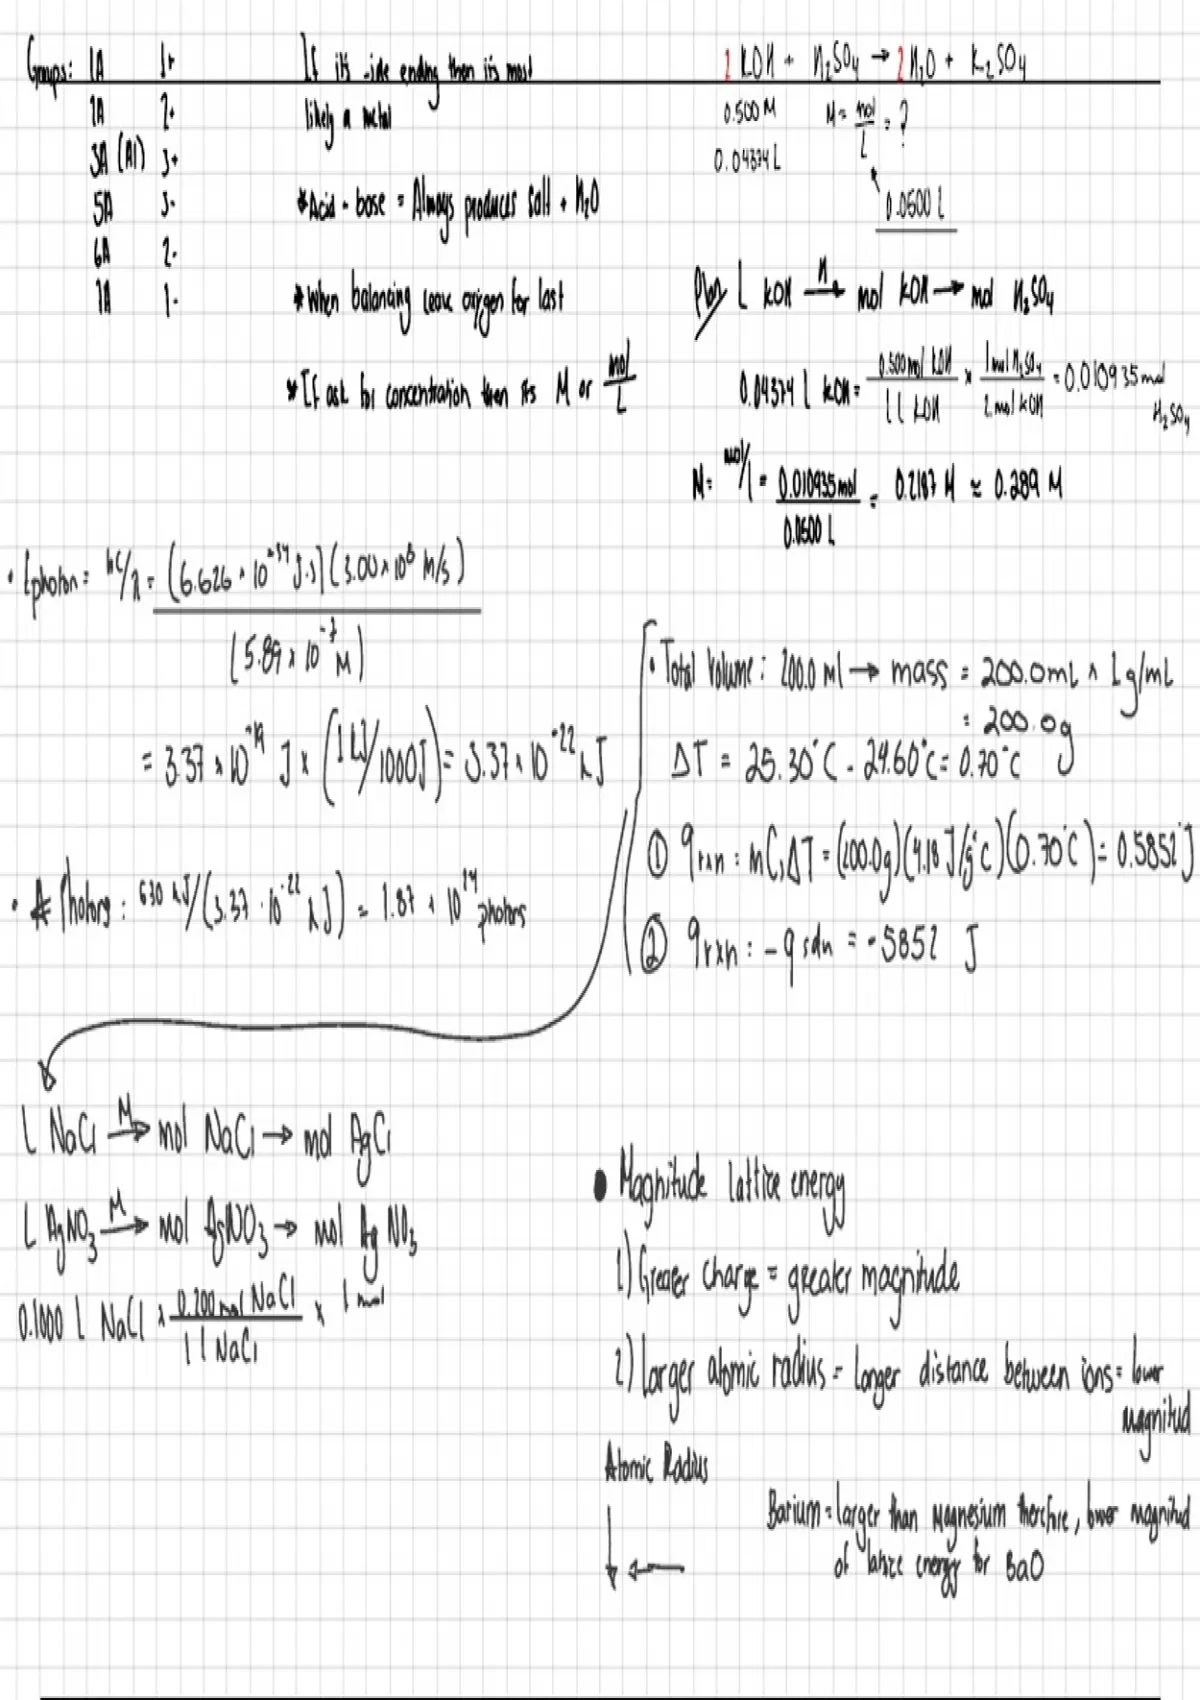 Groups: 1A 1+
2A 2+
3A (Al) 3+
5A 3-
6A 2-
7A 1-
If its -ide ending then its most
likely a metal
*Acid - base = Always produces salt + H₂O
*When balancing leave oxygen for last
*If ask for concentration then its M or mol/L
2 KOH + H₂SO₄ → 2 H₂O + K₂SO₄
0.500 M M = mol/L = ?
0.04374 L
0.0500 L
Plan L KOH →M mol KOH → mol H₂SO₄
0.04374 L KOH = 0.500 mol KOH / 1 L KOH × 1 mol H₂SO₄ / 2 mol KOH = 0.010935 mol H₂SO₄
M = mol/L = 0.010935 mol / 0.0500 L = 0.2187 M ≈ 0.289 M
• Ephoton = hc/λ = (6.626 × 10⁻³⁴ J·s)(3.00 × 10⁸ M/s)
(5.89 × 10⁻⁷ M)
= 3.37 × 10⁻¹⁹ J × (1 kJ/1000J) = 3.37 × 10⁻²² kJ
• # Photons: 630 kJ/(3.37 · 10⁻²² kJ) = 1.87 × 10²⁴ photons
• Total Volume: 200.0 ml → mass = 200.0mL × 1g/mL
= 200.0g
ΔT = 25.30°C - 24.60°C = 0.70°C
① qrxn = mCsΔT = (200.0g)(4.18 J/g°C)(0.70°C) = 0.5852 J
② qrxn = -qsoln = -5852 J
L NaCl →M mol NaCl → mol AgCl
L AgNO₃ →M mol AgNO₃ → mol AgNO₃
0.1000 L NaCl × 0.200 mol NaCl / 1 L NaCl × 1 mol
• Magnitude lattice energy
1) Greater charge = greater magnitude
2) Larger atomic radius = longer distance between ions = lower
magnitud
Atomic Radius
Barium = larger than Magnesium therefore, lower magnitud
of lattice energy for BaO